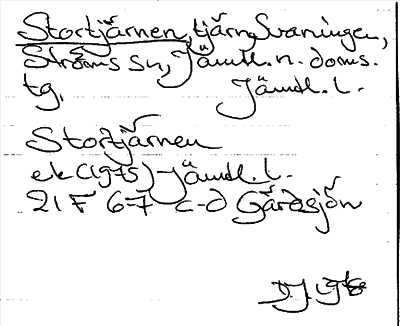 Stortjärnen, tjärn Svaningen,
Ströms sn, Jämtl. n. doms.
tg. Jämtl. l.
Stortjärnen
ek (1975) Jämtl. l.
21 F 6-7 c-d Gärdsjön